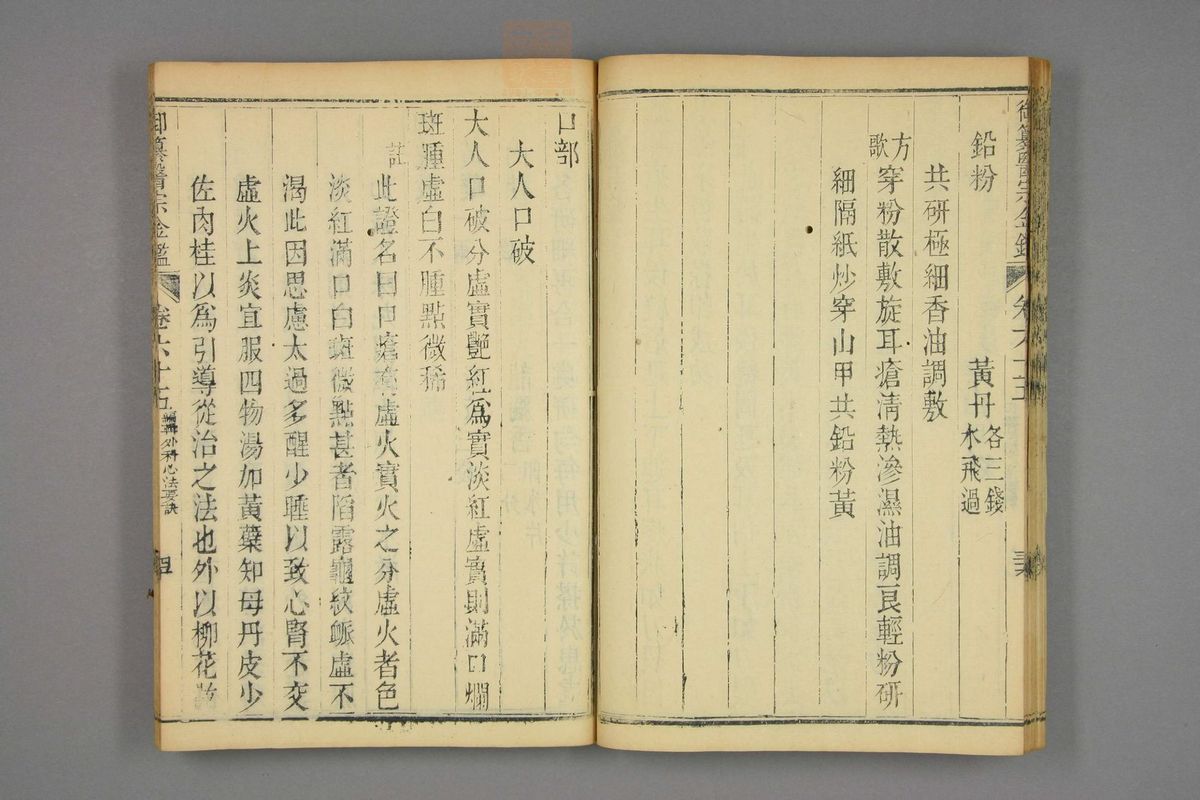 鉛粉 黃丹各三錢水飛過
共研極細香油調敷
方歌穿粉散敷旋耳瘡淸熱滲濕油調良輕粉研
細隔紙炒穿山甲共鉛粉黃
口部
大人口破
大人口破分虛實艷紅爲實淡紅虛實則滿口爛
斑腫虛白不腫點微稀
註此證名曰口瘡有虛火實火之分虛火者色
淡紅滿口白斑微點甚者陷露龜紋脈虛不
渴此因思慮太過多醒少睡以致心腎不交
虛火上炎宜服四物湯加黃蘗知母丹皮少
佐肉桂以爲引導從治之法也外以柳花散
御纂醫宗金鑑 卷六十五 編輯外科心法要訣